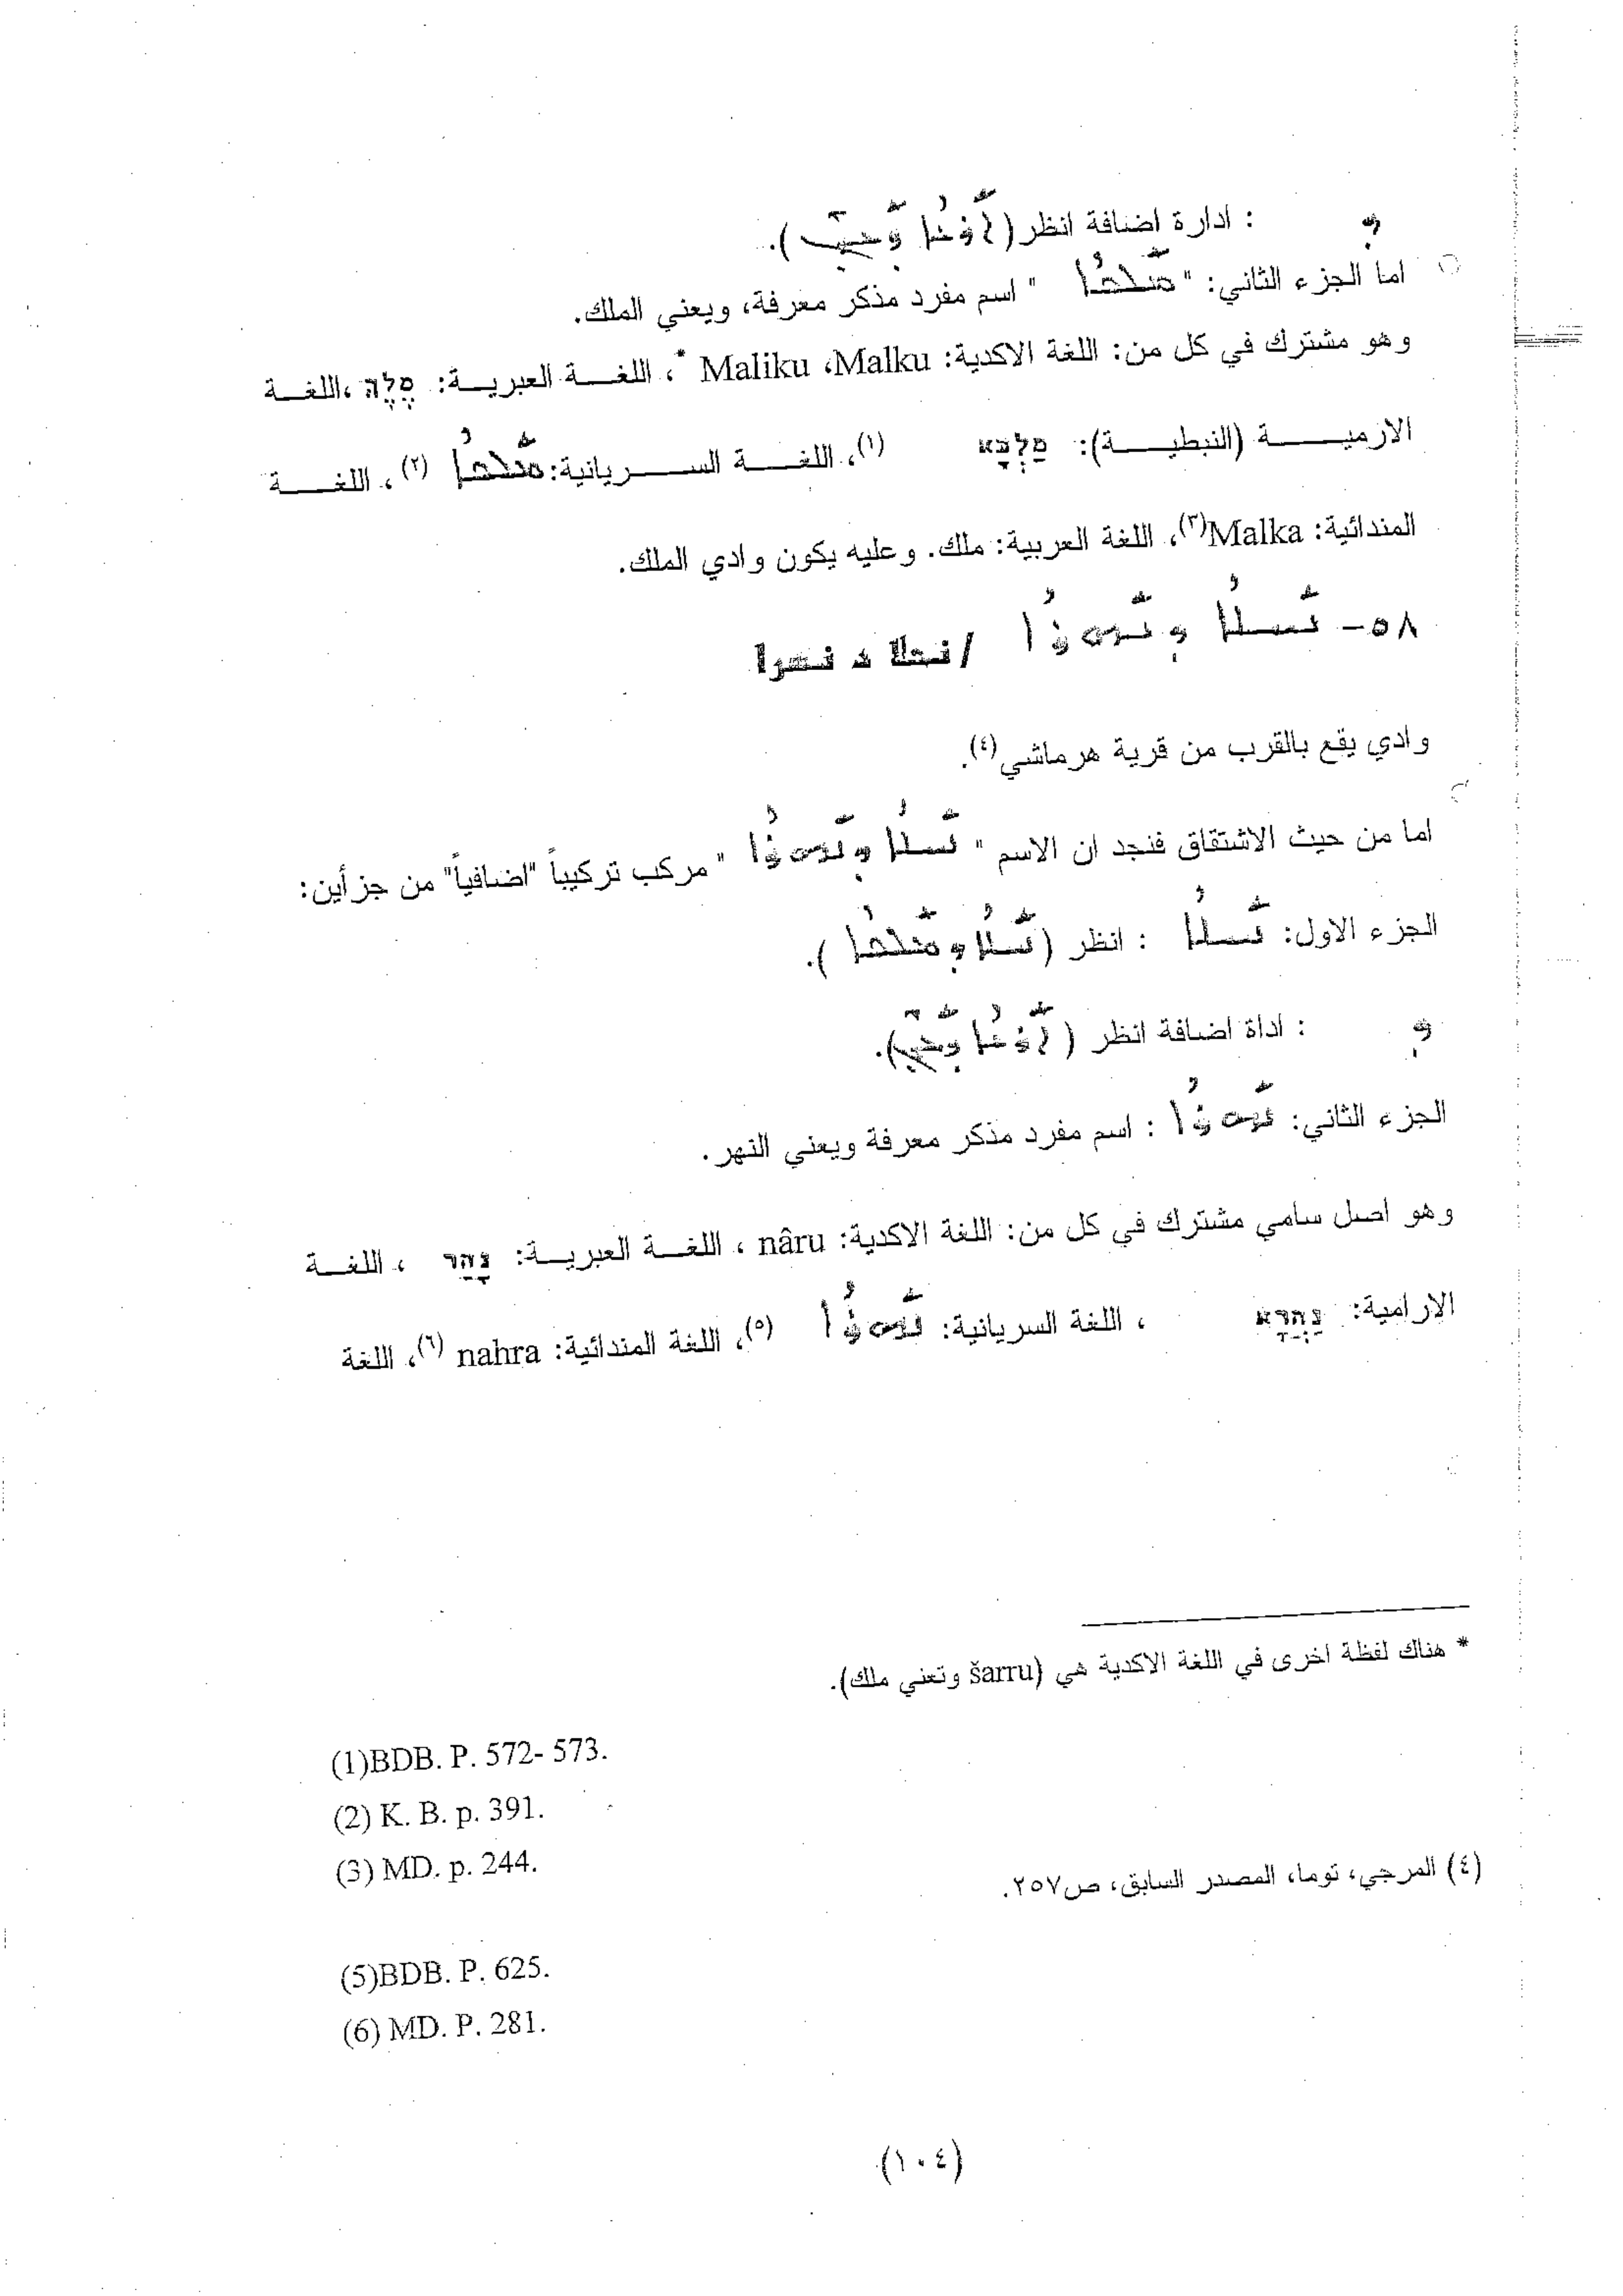 ܕ : ادارة اضافة انظر (ܐܲܪܥܵܐ ܕ).
اما الجزء الثاني: " ܡܲܠܟܵܐ " اسم مفرد مذكر معرفة، ويعني الملك.
وهو مشترك في كل من: اللغة الاكدية: Maliku ،Malku *، اللغـــة العبريـــة: ،اللغـــة
الارميـــــة (النبطيـــة): מַלְכָּא (١)، اللغـــة الســــريانية: ܡܲܠܟܵܐ (٢)، اللغـــة
المندائية: Malka(٣)، اللغة العربية: ملك. وعليه يكون وادي الملك.
٥٨- ܢܲܚܠܵܐ ܕܢܲܗܪܵܐ / ܢܚܠܐ ܕ ܢܗܪܐ
وادي يقع بالقرب من قرية هرماشي(٤).
اما من حيث الاشتقاق فنجد ان الاسم " ܢܲܚܠܵܐ ܕܢܲܗܪܵܐ " مركب تركيباً "اضافياً" من جزأين:
الجزء الاول: ܢܲܚܠܵܐ : انظر (ܢܲܚܠܵܐ ܕܡܲܠܟܵܐ ).
ܕ : اداة اضافة انظر ( ܐܲܪܥܵܐ ܕ).
الجزء الثاني: ܢܲܗܪܵܐ : اسم مفرد مذكر معرفة ويعني النهر.
وهو اصل سامي مشترك في كل من: اللغة الاكدية: nâru ، اللغـــة العبريـــة: נָהַר ، اللغـــة
الارامية: נַהְרָא ، اللغة السريانية: ܢܲܗܪܵܐ (٥)، اللغة المندائية: nahra (٦)، اللغة
* هناك لفظة اخرى في اللغة الاكدية هي (šarru وتعني ملك).
(1)BDB. P. 572- 573.
(2) K. B. p. 391.
(3) MD. p. 244.
(٤) المرجي، توما، المصدر السابق، ص٢٥٧.
(5)BDB. P. 625.
(6) MD. P. 281.
(١٠٤)